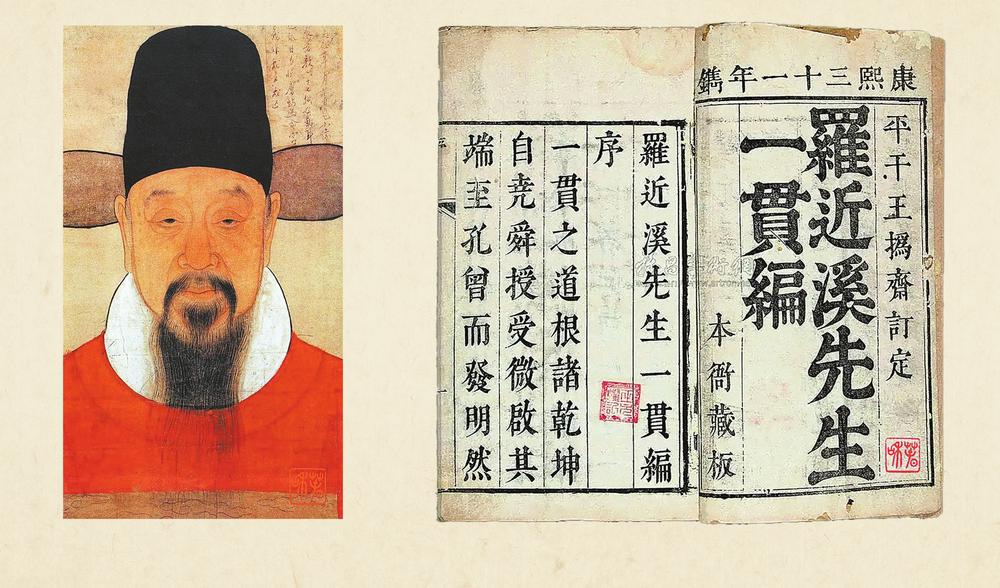 康熙三十一年鐫
平干王撝齋訂定
羅近溪先生
一貫編
本衙藏板
羅近溪先生一貫編
序
一貫之道根諸乾坤
自尭舜授受微啟其
端至孔曾而發明然